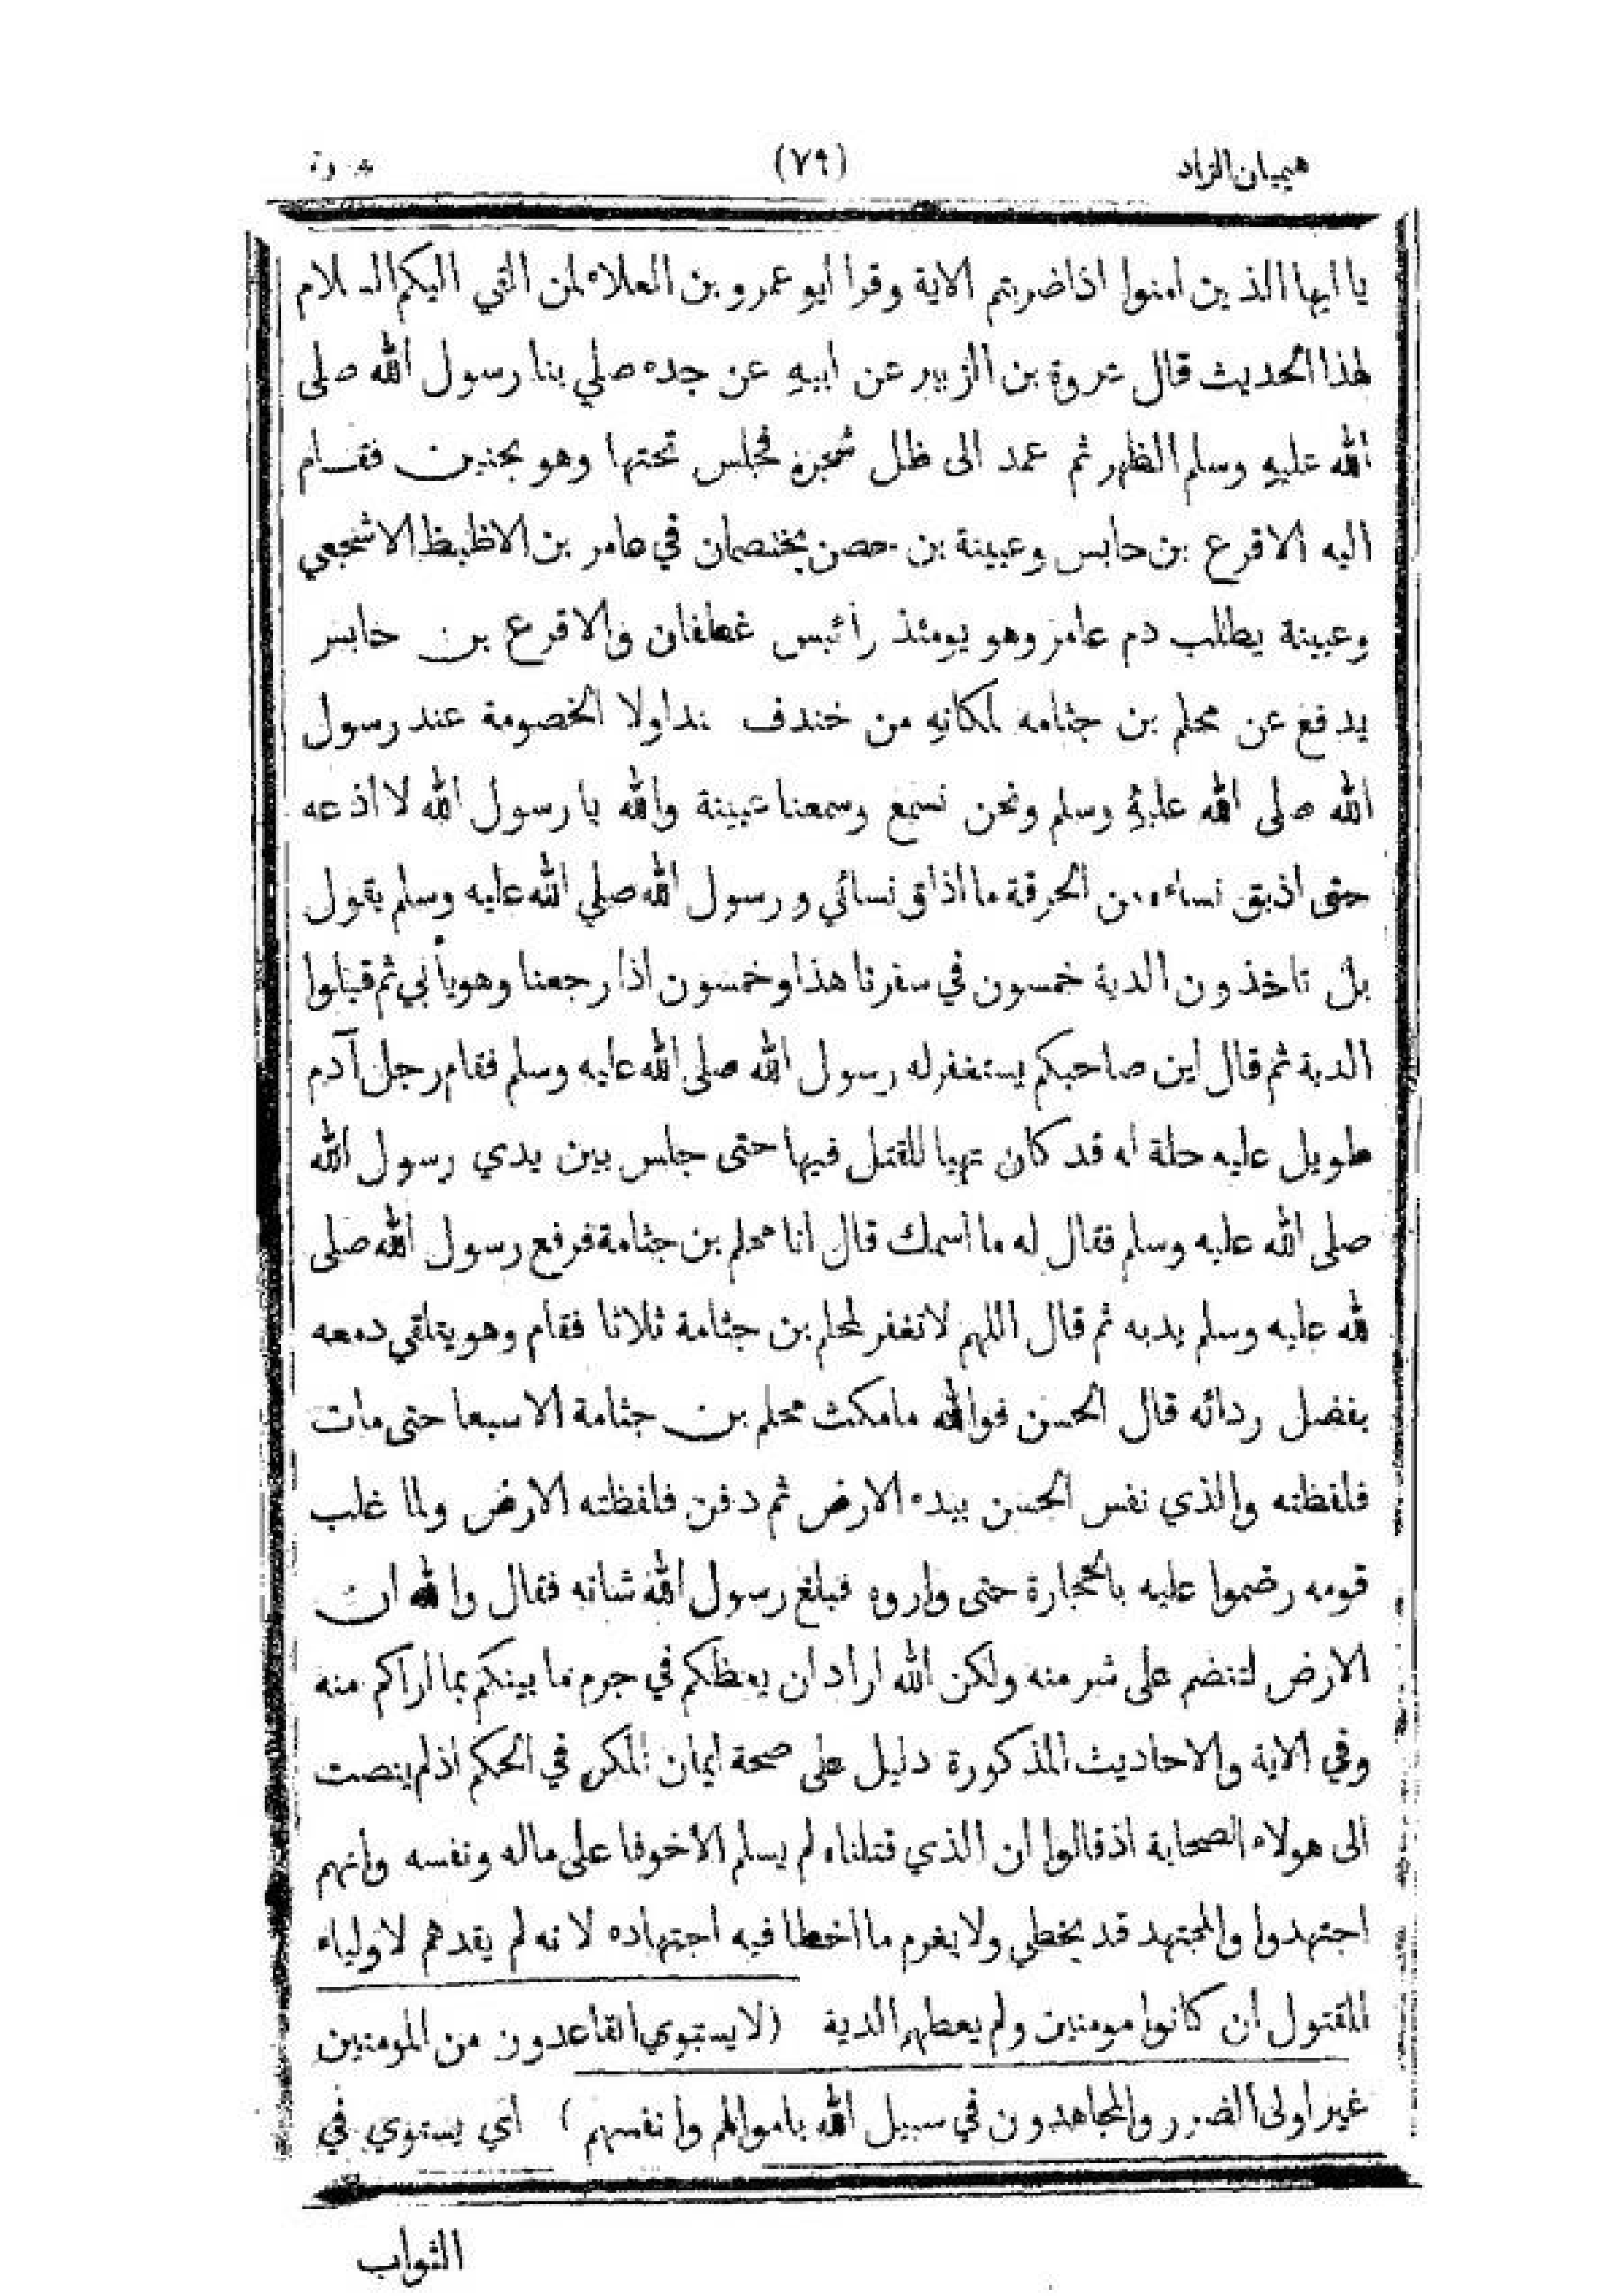 هيميان الزاد (٧٩)
يا ايها الذين امنوا اذا ضربتم الاية وقرا ابو عمرو بن العلاء لمن القي اليكم السلام
لهذا الحديث قال عروة بن الزبير عن ابيه عن جده صلي بنا رسول الله صلى
الله عليه وسلم الظهر ثم عمد الى ظل شجرة فجلس تحتها وهو بحنين فقام
اليه الاقرع بن حابس وعيينة بن حصن يختصمان في عامر بن الاظبط الاشجعي
وعيينة يطلب دم عامر وهو يومئذ رأئيس غطفان والاقرع بن حابس
يدفع عن محلم بن جثامه لمكانه من خندف نداولا الخصومة عند رسول
الله صلى الله عليه وسلم ونحن نسمع وسمعنا عيينة والله يا رسول الله لا اذعه
حتى اذيق نساءه من الحرقة ما اذاق نسائي ورسول الله صلي الله عليه وسلم يقول
بل تاخذون الدية خمسون في سفرنا هذا وخمسون اذا رجعنا وهو يأبي ثم قبلوا
الدية ثم قال اين صاحبكم يستغفر له رسول الله صلى الله عليه وسلم فقام رجل آدم
طويل عليه حلة له قد كان تهيا للقتل فيها حتى جلس بين يدي رسول الله
صلى الله عليه وسلم فقال له ما اسمك قال انا محلم بن جثامة فرفع رسول الله صلى
لله عليه وسلم يديه ثم قال اللهم لا تغفر لمحلم بن جثامة ثلاثا فقام وهو يتلقي دمعه
بفضل ردائه قال الحسن فوالله ما مكث محلم بن جثامة الا سبعا حتى مات
فلفظته والذي نفس الحسن بيده الارض ثم دفن فلفظته الارض ولما غلب
قومه رضموا عليه بالحجارة حتى واروه فبلغ رسول الله شانه فقال والله ان
الارض لتنضم على شر منه ولكن الله اراد ان يعظكم في جرم ما بينكم بما اراكم منه
وفي الاية والاحاديث المذكورة دليل على صحة ايمان المكره في الحكم اذ لم ينصت
الى هولاء الصحابة اذ قالوا ان الذي قتلناه لم يسلم الأ خوفا على ماله ونفسه وانهم
اجتهدوا والمجتهد قد يخطي ولا يغرم ما اخطا فيه اجتهاده لانه لم يقدهم لاولياء
المقتول ان كانوا مومنين ولم يعطهم الدية (لا يستوي القاعدون من المومنين
غير اولى الضرر والمجاهدون في سبيل الله باموالهم وانفسهم) اي يستوي في
الثواب